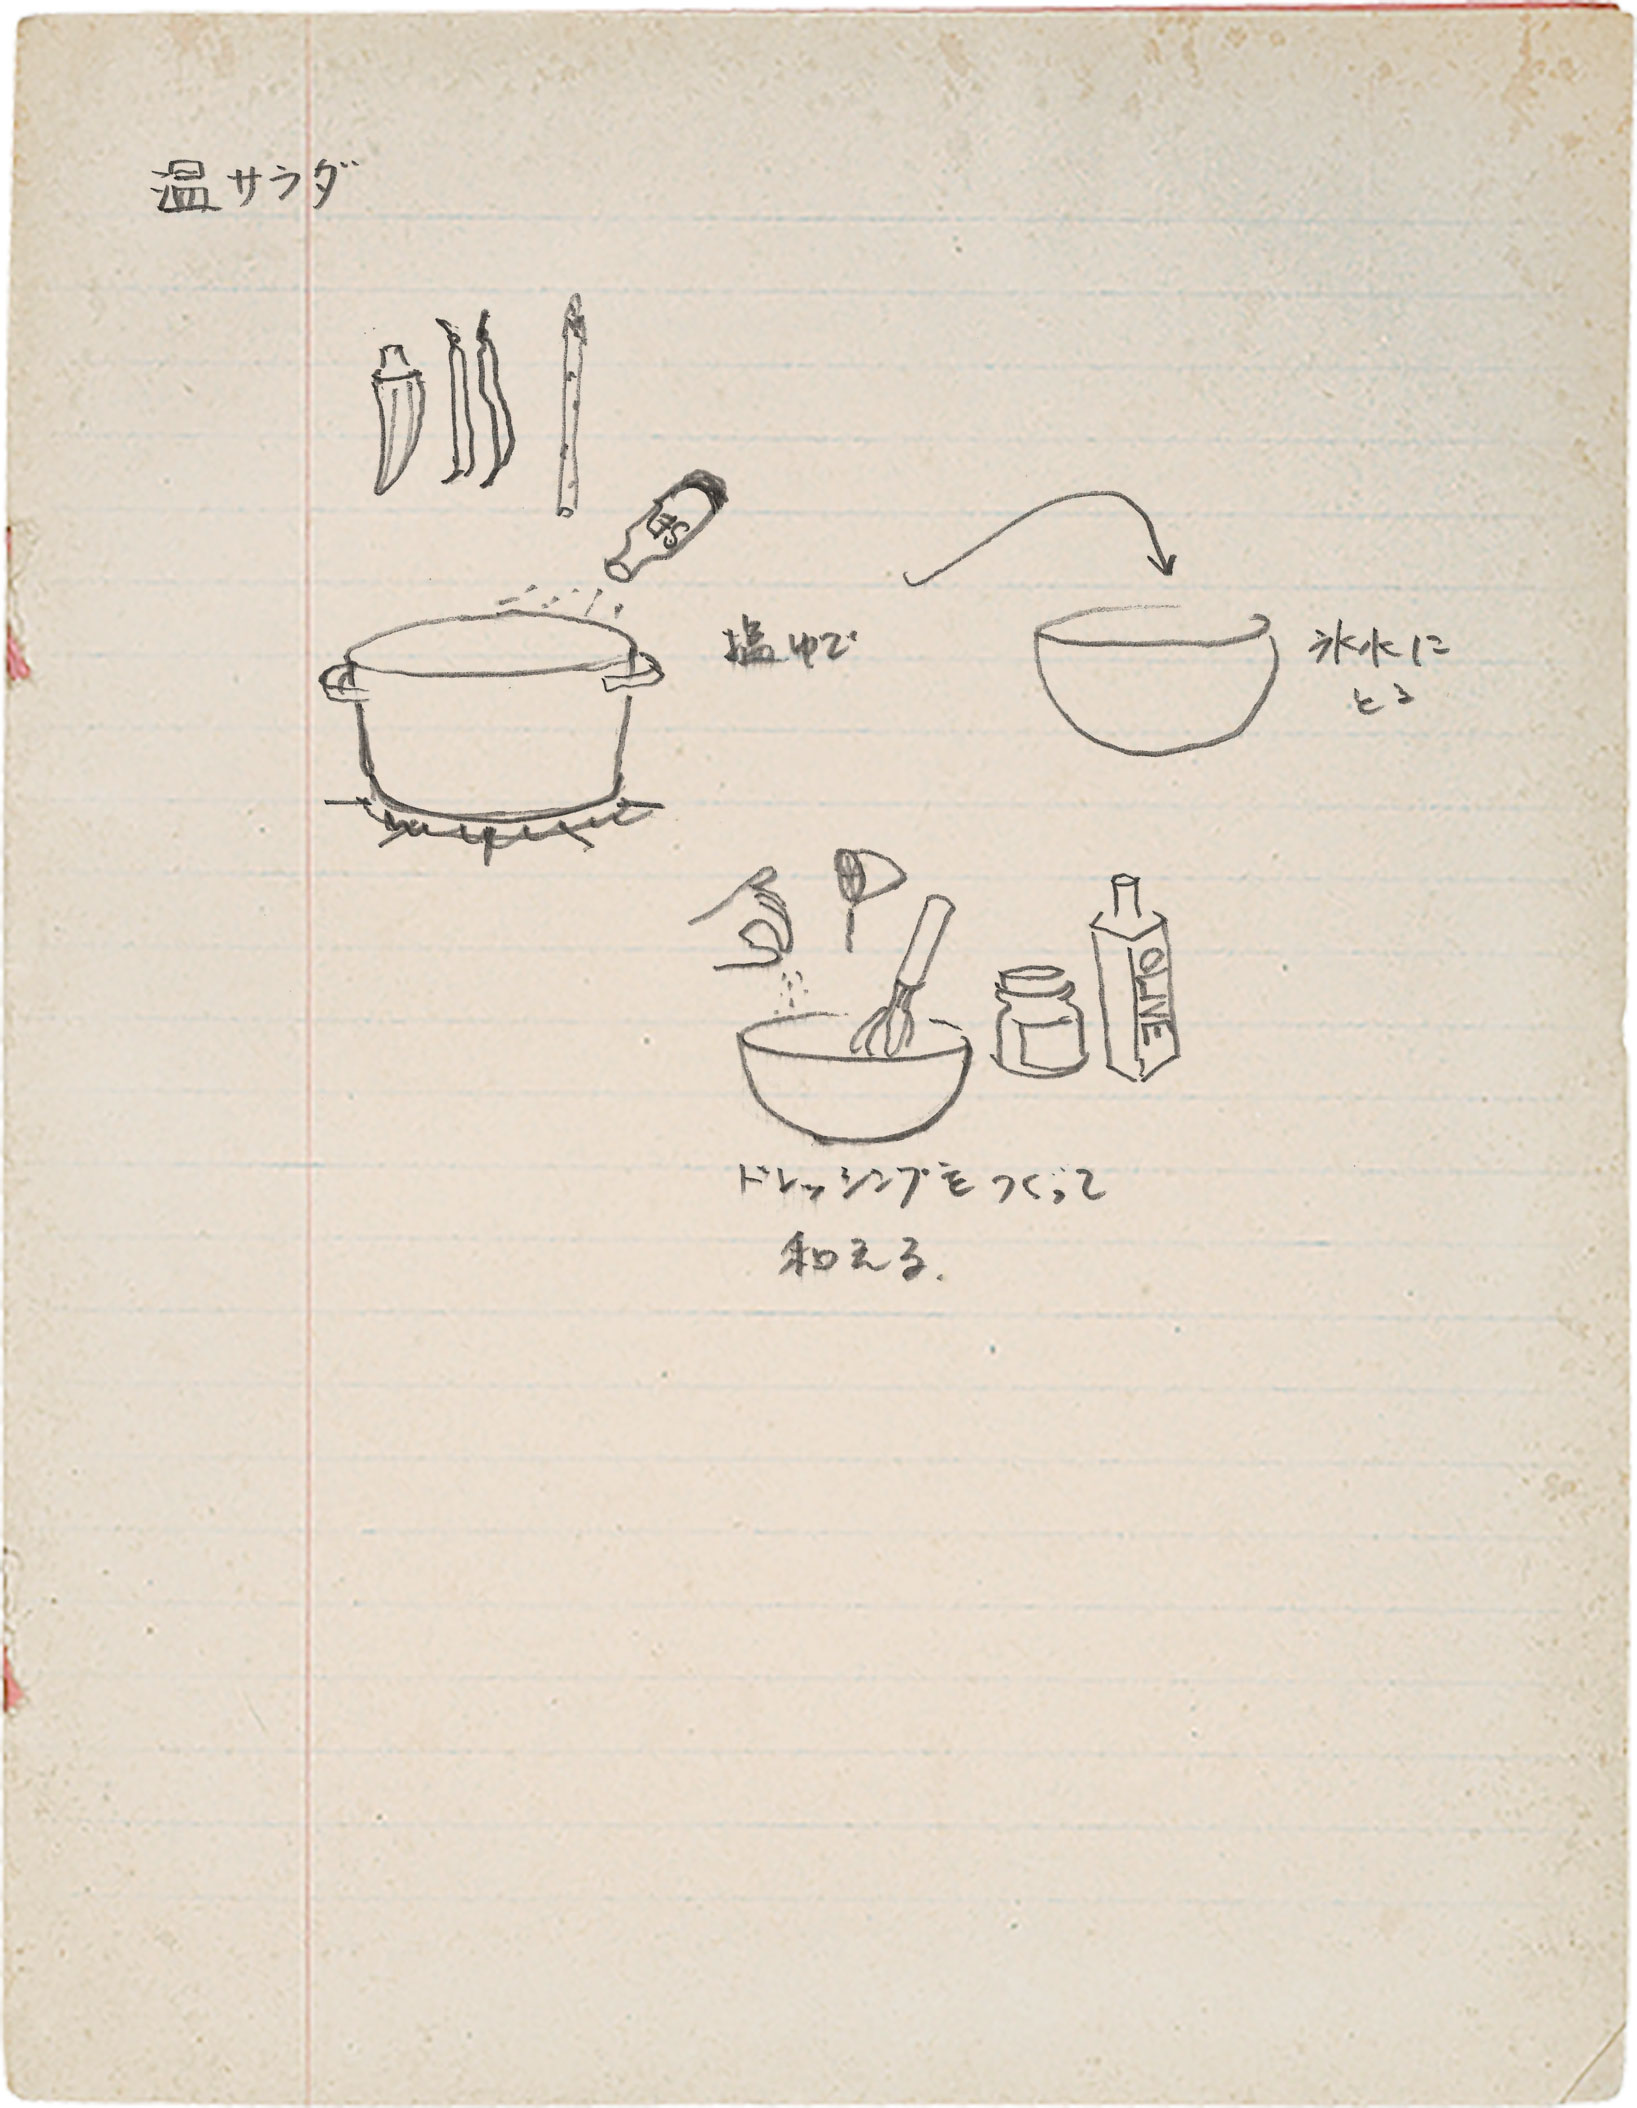 温サラダ
塩ゆで
氷水に
とる
OLIVE
ドレッシングをつくって
和える.